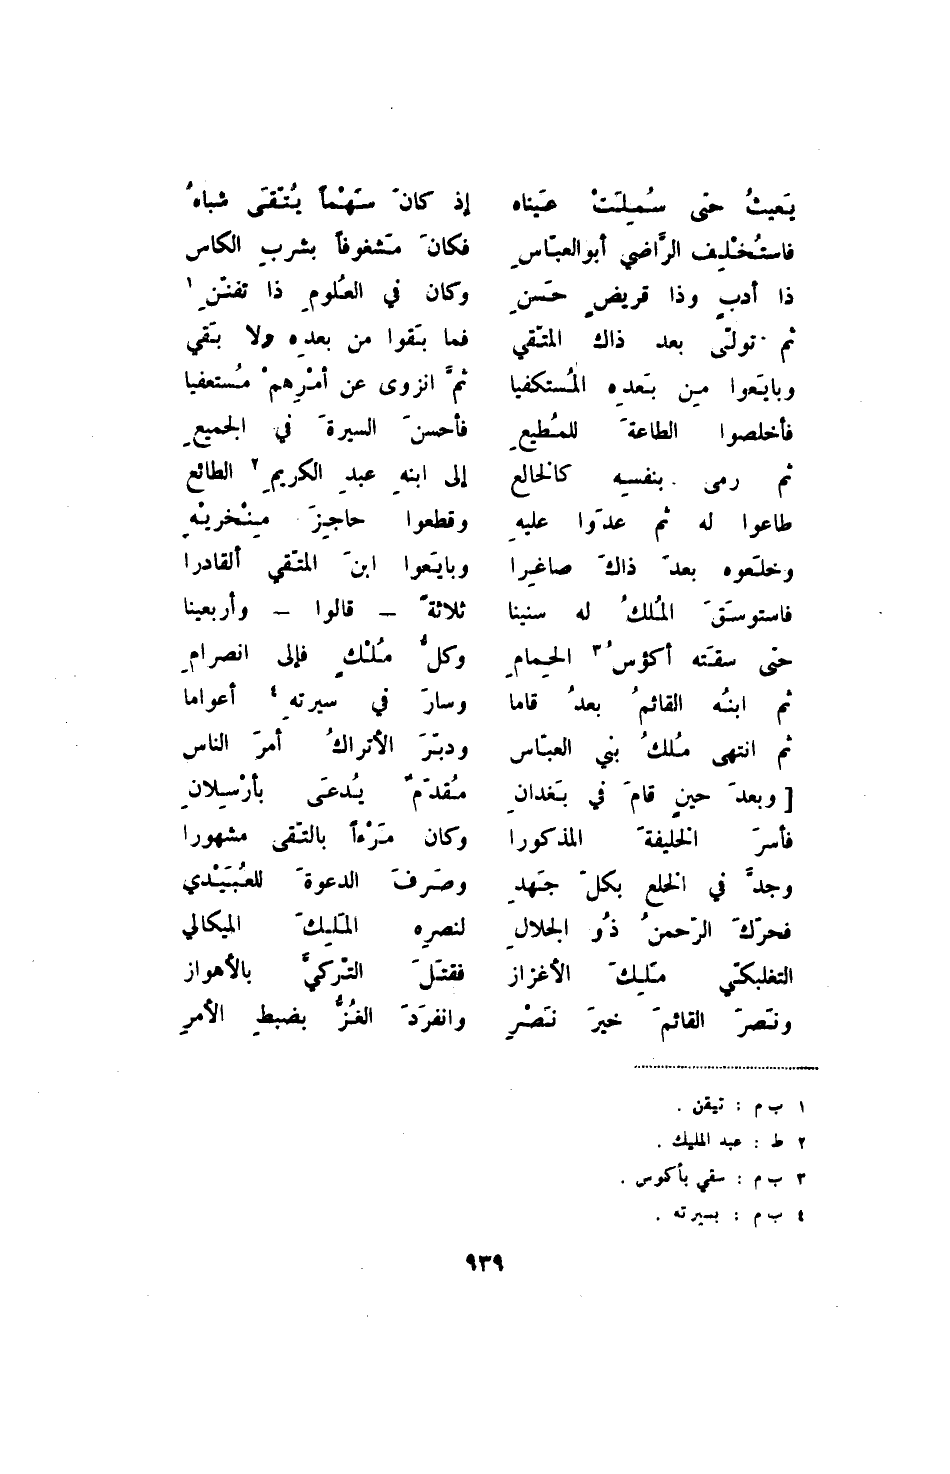 يَعيثُ حتى سُمِلَتْ عَيناه إذ كانَ سَهْماً يُتّقَى شباهُ
فاستُخْلِف الرَّاضي أبوالعبّاسِ فكانَ مَشغوفاً بشربِ الكاس
ذا أدبٍ وذا قريضٍ حَسَنِ وكان في العُلومِ ذا تفنّنِ ١
ثم تولّى بعد ذاك المتّقي فما بَقوا من بعدِه ولا بَقي
وبايَعوا مِن بَعدِه المُستكفيا ثمَّ انزوى عن أمْرِهمْ مُستعفيا
فأخلصوا الطاعةَ للمُطيعِ فأحسنَ السيرةَ في الجميعِ
ثم رمى بنفسِه كالْخالع إلى ابنهِ عبدِ الكريمِ ٢ الطائع
طاعوا له ثم عدَوا عليهِ وقطعوا حاجِزَ مِنْخريْهِ
وخلَعوه بعدَ ذاكَ صاغِرا وبايَعوا ابنَ المتّقي ألقادرا
فاستوسَقَ المُلكُ له سنينا ثلاثةً – قالوا – وأربعينا
حتى سقَته أكؤسُ ٣ الحِمامِ وكلُّ مُلْكٍ فإلى انصرامِ
ثم ابنُه القائمُ بعدُ قاما وسارَ في سيرتهِ ٤ أعواما
ثم انتهى مُلكُ بني العبّاس ودبّرَ الأتراكُ أمرَ الناس
[ وبعدَ حينٍ قامَ في بَغدانِ مُقدّمٌ يُدعَى بأرْسِلانِ
فأسرَ الْخليفةَ المذكورا وكان مَرْءاً بالتّقى مشهورا
وجدَّ في الْخلع بكلّ جَهدِ وصَرفَ الدعوةَ للعُبَيْدي
فحرّكَ الرّحمنُ ذُو الجلالِ لنصرِه المَلِيكَ الميكالي
التغلبكيّ مَلِكَ الأغزاز فقتَلَ التّركيَّ بالأهواز
ونَصرَ القائمَ خيرَ نَصْرِ وانفرَدَ الغُزُّ بضبطِ الأمرِ
١ ب م : تيقن .
٢ ط : عبد المليك .
٣ ب م : سقي بأكوس .
٤ ب م : بسيرته .
٩٣٩